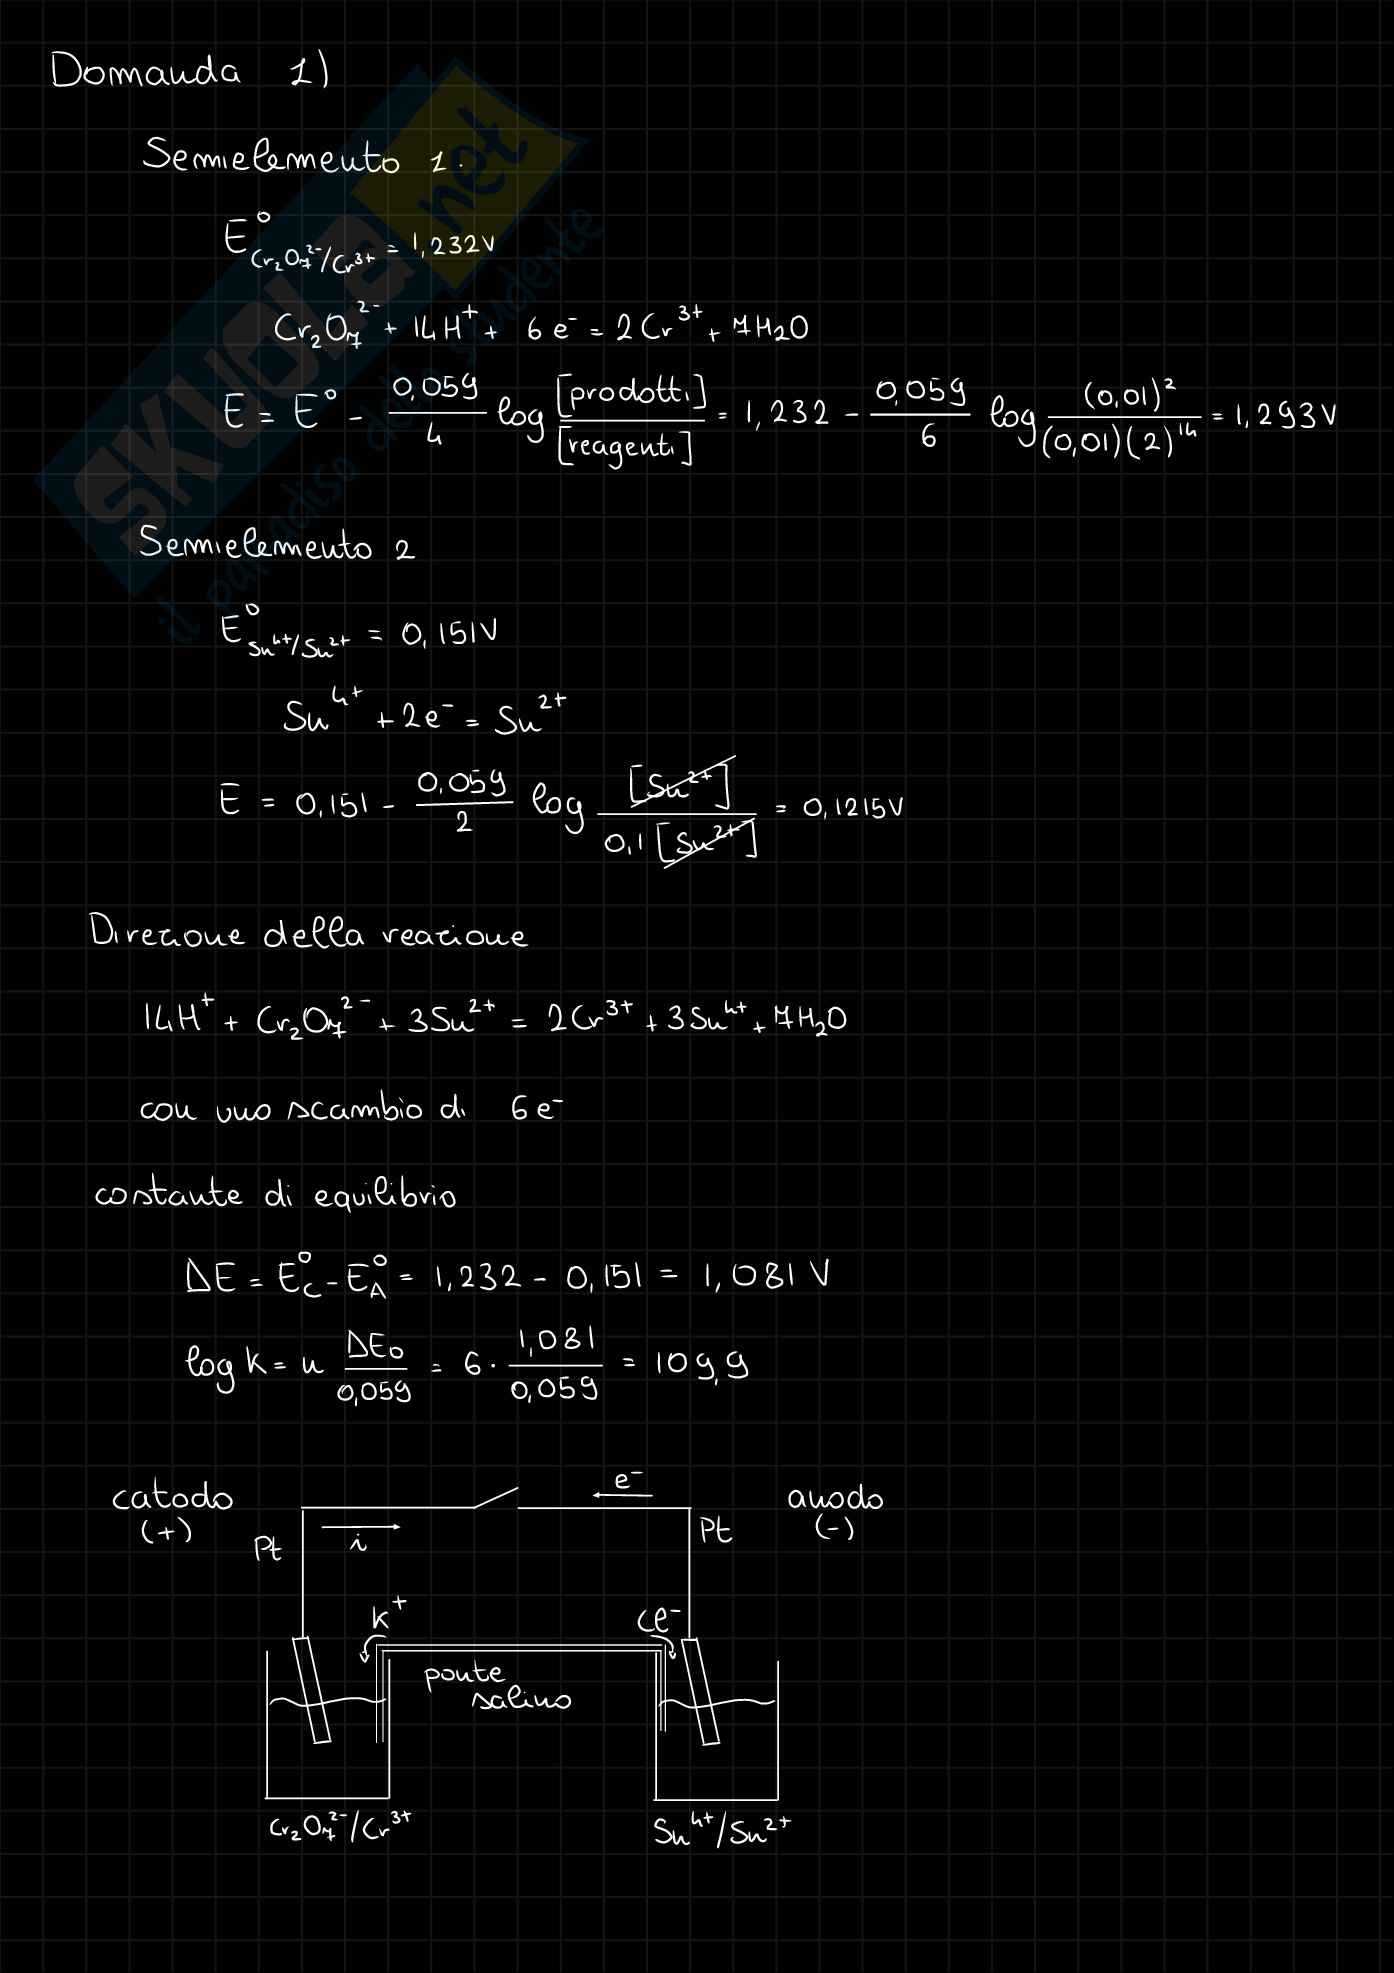 Domanda 1)
Semielemento 1.
E° Cr₂O₇²⁻/Cr³⁺ = 1,232V
Cr₂O₇²⁻ + 14H⁺ + 6e⁻ = 2Cr³⁺ + 7H₂O
E = E° - 0,059/4 log [prodotti]/[reagenti] = 1,232 - 0,059/6 log (0,01)²/(0,01)(2)¹⁴ = 1,293V
Semielemento 2
E° Sn⁴⁺/Sn²⁺ = 0,151V
Sn⁴⁺ + 2e⁻ = Sn²⁺
E = 0,151 - 0,059/2 log [Sn²⁺]/0,1[Sn²⁺] = 0,1215V
Direzione della reazione
14H⁺ + Cr₂O₇²⁻ + 3Sn²⁺ = 2Cr³⁺ + 3Sn⁴⁺ + 7H₂O
con uno scambio di 6e⁻
costante di equilibrio
ΔE = E°C - E°A = 1,232 - 0,151 = 1,081 V
log K = n ΔE₀/0,059 = 6 · 1,081/0,059 = 109,9
catodo e⁻ anodo
(+) Pt i Pt (-)
K⁺ Cl⁻
ponte
salino
Cr₂O₇²⁻/Cr³⁺ Sn⁴⁺/Sn²⁺
SKUOLa.net
il paradiso dello studente